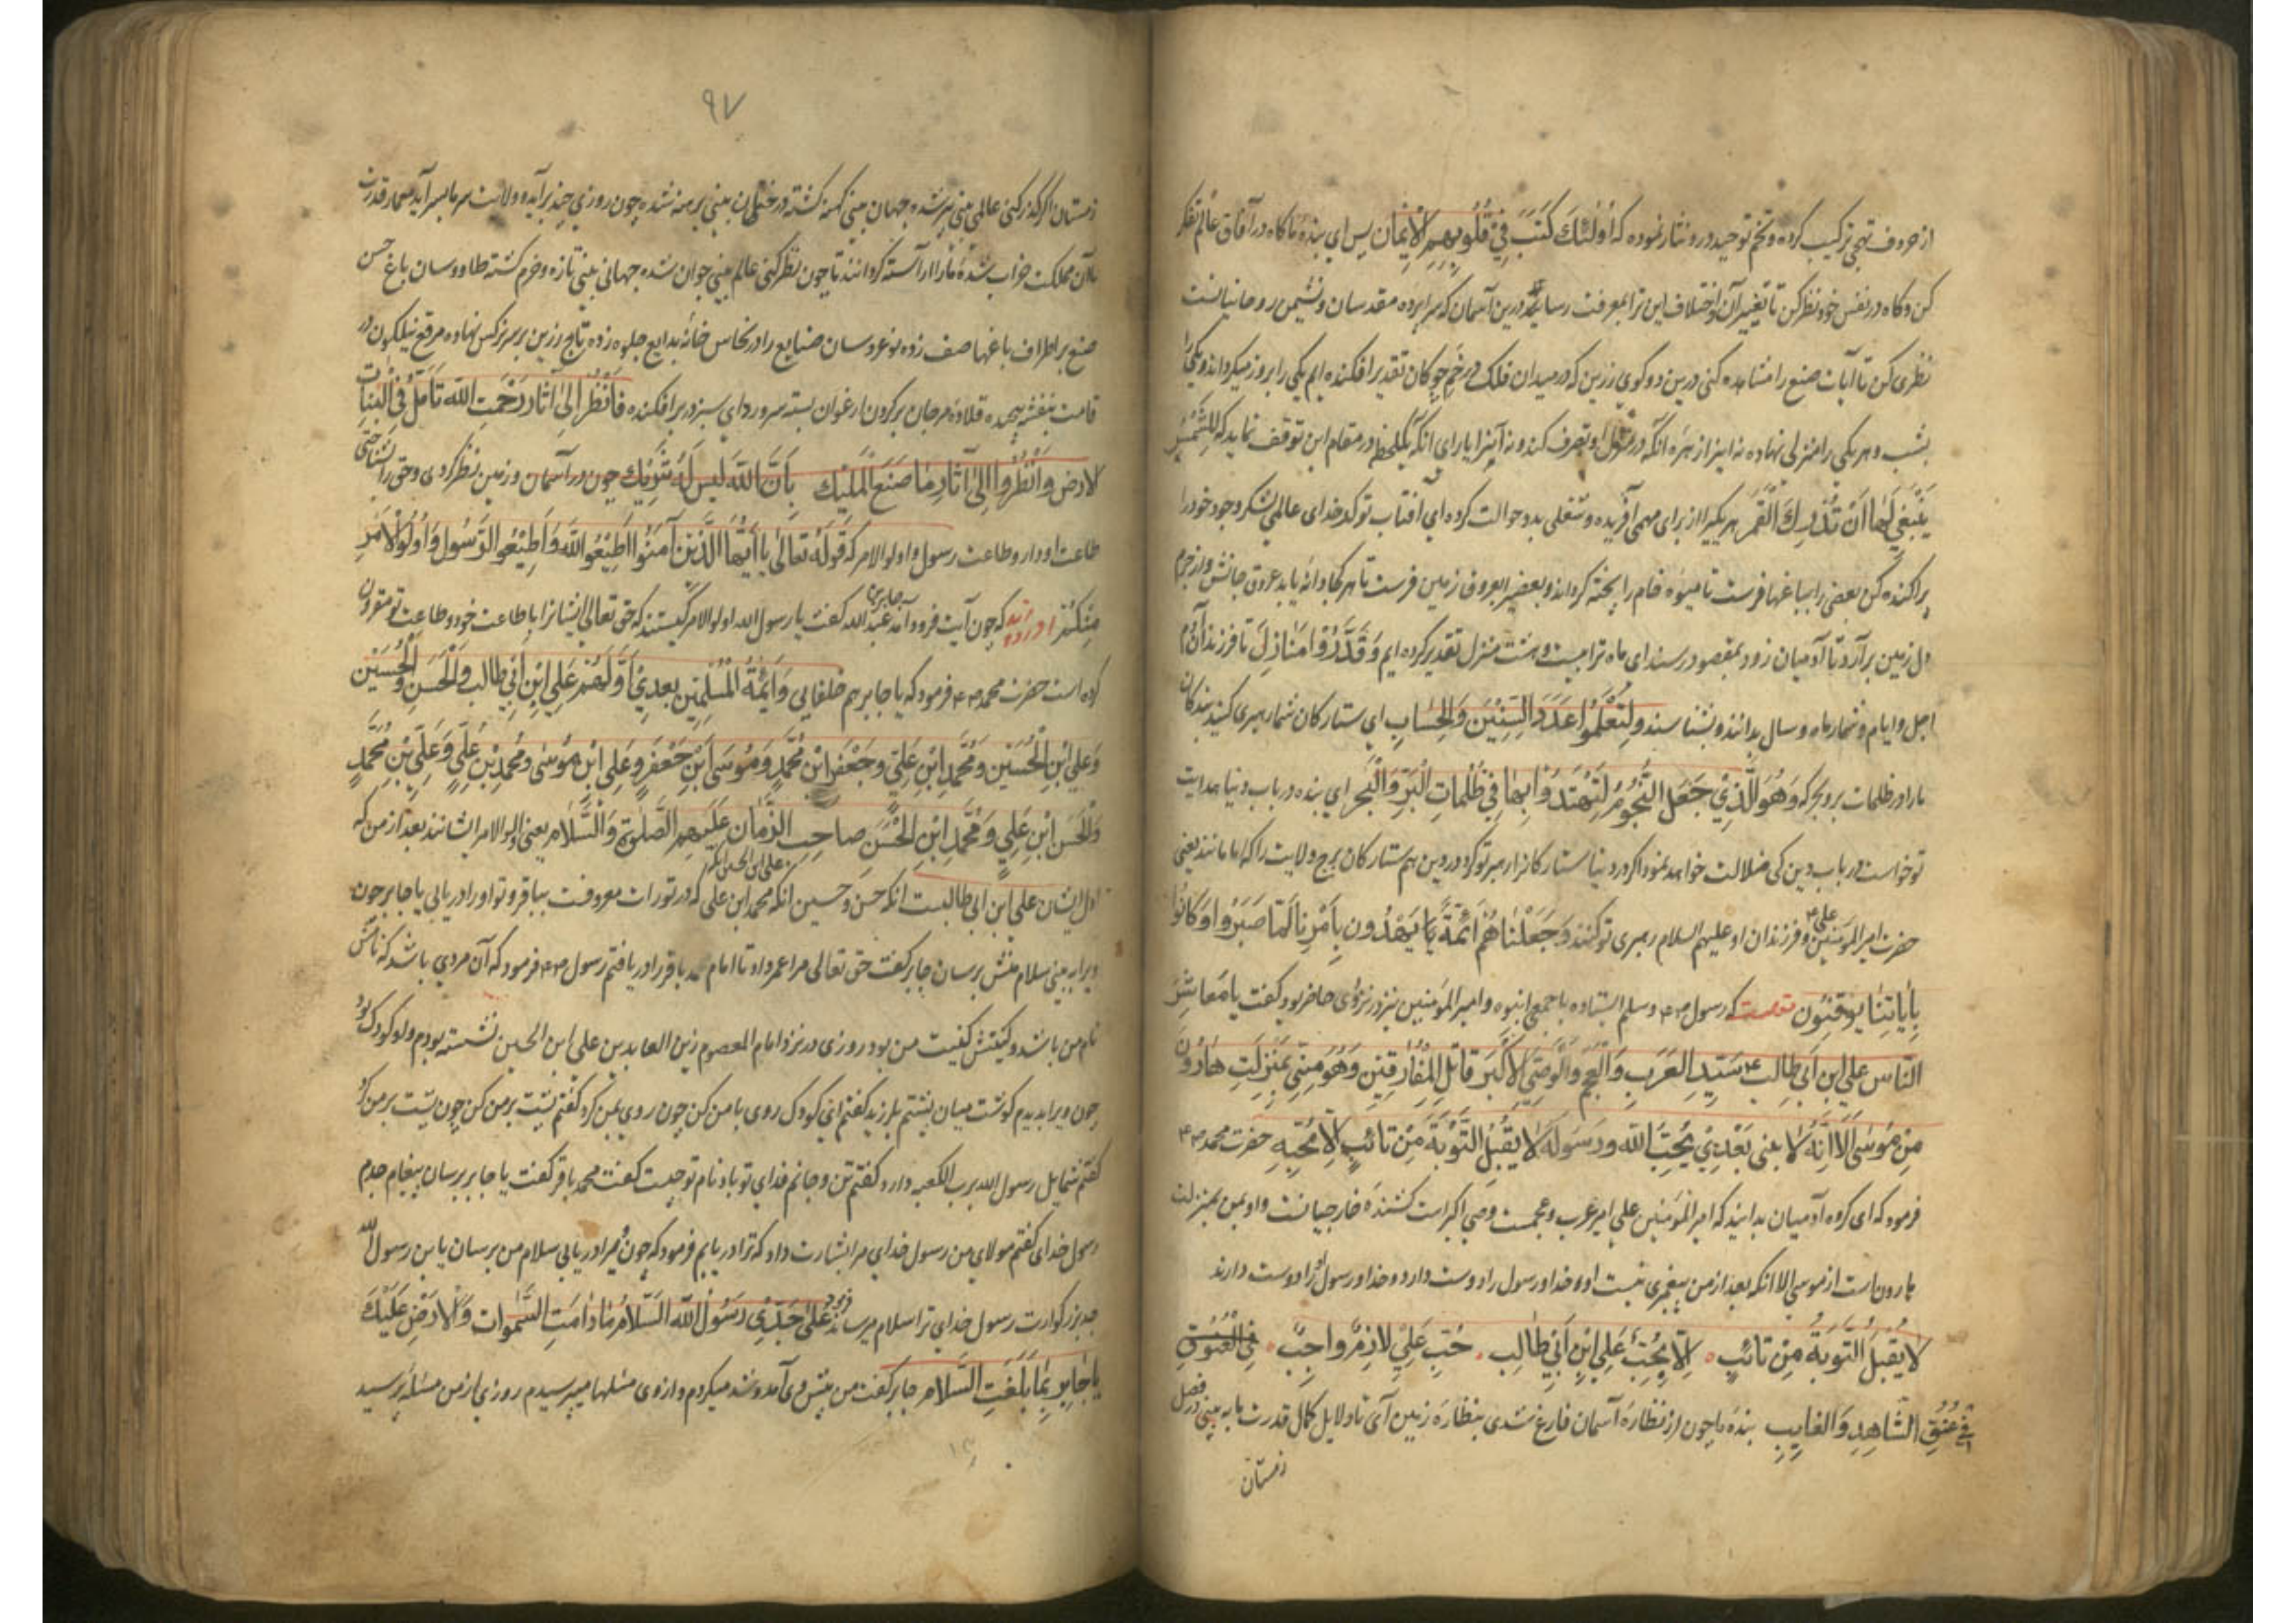 از حروف تهجی ترکیب کرده و تخم توحید درو نثار نموده که اُولٰئِكَ كَتَبَ فِي قُلُوبِهِمِ الْاِيْمٰان پس ای بنده ناکاه در آفاق عالم تفکر
کن و کاه در نفس خود نظر کن تا تغییر آن و اختلاف این ترا بمعرفت رساند درین آسمان که سراپرده مقدسان و نشیمن روحانیانست
نظری کن تا آیات صنع را مشاهده کنی درین دو کوی زرین که در میدان فلک در خم چوکان تقدیر افکنده ایم یکی را بروز میکرداند و یکی را
بشب و هر یکی را منزلی نهاده نه اینرا زهره آنکه در تصرف کند و نه آنرا یارای آنکه یکلحظه در مقام این توقف نماید که لَا الشَّمْسُ
يَنْبَغِي لَهٰا اَنْ تُدْرِكَ الْقَمَرَ هر یکیرا از برای مهمی آفریده و شغلی بدو حوالت کرده ای آفتاب تو کدخدای عالمی لشکر وجود خود را
پراکنده کن بعضی را بباغها فرست تا میوه خام را پخته کرداند و بعضیرا بعروق زمین فرست تا هر کجا دانه یابد عروق جانش را از جرم
دل زمین برآرد تا آدمیان زود بمقصود رسند ای ماه ترا بیست و هشت منزل تقدیر کرده ایم وَقَدَّرُوْا مَنٰازِلَ تا فرزند آدم
اجل و ایام و شمار ماه و سال بدانند و بشناسند وَلِتَعْلَمُوْا عَدَدَ السِّنِيْنَ وَالْحِسٰابِ ای ستارکان شما رهبری کنید بندکان
ما را در ظلمات بر و بحر که وَهُوَ الَّذِيْ جَعَلَ النُّجُوْمَ لِتَهْتَدُوْا بِهٰا فِيْ ظُلُمٰاتِ الْبَرِّ وَالْبَحْرِ ای بنده در باب دنیا هدایت
تو خواست در باب دین کی ضلالت خواهد نمود اکر در دنیا ستارکانرا رهبر تو کرد در دین هم ستارکان برج ولایت را که امامانند یعنی
حضرت امیر المؤمنین علی ع و فرزندان او علیهم السلام رهبری تو کنند وَجَعَلْنٰاهُمْ اَئِمَّةً يَهْدُونَ بِاَمْرِنٰا لَمّٰا صَبَرُوا وَكَانُوا
بِاٰيٰاتِنٰا يُوقِنُونَ قصه که رسول ص و سلم ایستاده با جمعی انبوه و امیر المؤمنین نیز در نزد وی حاضر بود کفت یا مَعٰاشِرَ
النّٰاسِ عَلِيِّ ابْنِ اَبِي طٰالِبٍ سَيِّدِ الْعَرَبِ وَالْعَجَمِ وَالْوَصِيِّ الْاَكْبَرِ قَاتِلِ الْمُفٰارِقِيْنَ وَهُوَ مِنِّي بِمَنْزِلَتِ هٰارُوْنَ
مِنْ مُوْسٰى اِلَّا اَنَّهُ لَا نَبِيَّ بَعْدِيْ يُحِبُّ اللّٰهَ وَرَسُوْلَهُ لَا يَقْبَلُ التَّوْبَةَ مِنْ تَائِبٍ اِلَّا بِحُبِّهِ حضرت محمد ص
فرمود که ای کروه آدمیان بدانید که امیر المؤمنین علی امیر عرب و عجمست وصی اکبر است کشنده خارجیانست و او بمن بمنزلت
هارونست از موسی الا آنکه بعد از من پیغمبری نیست او و خدا و رسول را دوست دارد و خدا و رسول او را دوست دارند
لَا يُقْبَلُ التَّوْبَةُ مِنْ تَائِبٍ اِلّٰا بِحُبِّ عَلِيِّ ابْنِ اَبِيْ طٰالِبٍ حُبِّ عَلِيٍّ لٰازِمٌ وٰاجِبٌ فِي الْعُنُوْقِ
فِي عُنُقِ الشّٰاهِدِ وَالْغٰايِبِ بنده ما چون از نظاره آسمان فارغ شدی بنظاره زمین آی تا دلایل کمال قدرت ما به بینی در فصل
زمستان
۹۷
زمستان اکر کذر کنی عالمی بینی پیر شده جهان بینی کهنه کشته درختان بینی برهنه شده چون روزی چند برآید و ولایت سرما بسر آید معمار قدرت
ما آن مملکت خراب شده ما را آراسته کردانند تا چون نظر کنی عالم بینی جوان شده جهانی بینی تازه و خرم کشته طاووسان باغ حسن
صنع بر اطراف باغها صف زده نوعروسان صنایع را در نخاس خانه بدایع جلوه زده تاج زرین بر سر نرکس نهاده مرقع نیلکون در
قامت بنفشه پیچیده قلاده مرجان بر کردن ارغوان بسته سرو ردای سبز در بر افکنده فَانْظُرْ اِلٰى اٰثٰارِ رَحْمَتِ اللّٰهِ تَاَمَّلْ فِي النَّبٰاتِ
لارض وَانْظُرُوا اِلٰى اٰثٰارِ مٰا صَنَعَ الْمَلِيْكُ بِاَنَّ اللّٰهَ لَيْسَ لَهُ شَرِيْكٌ چون در آسمان و زمین نظر کردی و حق را شناختی
طاعت او دار و طاعت رسول و اولو الامر که قَوْلُهُ تَعٰالٰى يٰا اَيُّهَا الَّذِيْنَ آمَنُوْا اَطِيْعُوا اللّٰهَ وَاَطِيْعُوا الرَّسُولَ وَاُولُوا الْاَمْرِ
مِنْكُمْ آورده اند که چون آیت فرود آمد جابر بن عبد الله کفت یا رسول الله اولو الامر کیستند که حق تعالی ایشانرا با طاعت خود و طاعت تو مقرون
کرده است حضرت محمد ص فرمود که یا جابر هم خلفایی وَاَئِمَّةُ الْمُسْلِمِيْنَ بَعْدِيْ اَوَّلُهُمْ عَلِيُّ ابْنِ اَبِيْ طٰالِبٍ وَالْحَسَنِ وَالْحُسَيْنِ
وَعَلِيِّ ابْنِ الْحُسَيْنِ وَمُحَمَّدِ ابْنِ عَلِيٍّ وَجَعْفَرِ ابْنِ مُحَمَّدٍ وَمُوْسَى ابْنِ جَعْفَرٍ وَعَلِيِّ ابْنِ مُوْسٰى وَمُحَمَّدِ بْنِ عَلِيٍّ وَعَلِيِّ بْنِ مُحَمَّدٍ
وَالْحَسَنِ ابْنِ عَلِيٍّ وَمُحَمَّدِ ابْنِ الْحَسَنِ صٰاحِبِ الزَّمٰانِ عَلَيْهِمُ الصَّلٰوةُ وَالسَّلٰامُ یعنی اولو الامر ایشانند بعد از من که
اول ایشان علی ابن ابی طالبست آنکه حسن و حسین علی ابن الحسین آنکه محمد ابن علی که در تورات معروفست بباقر و تو او را دریابی یا جابر چون
ویرا ببینی سلام منش برسان جابر کفت حق تعالی مرا عمر داد تا امام محمد باقر را دریافتم رسول ص فرمود که آن مردی باشد که نامش
نام من باشد و کنیتش کنیت من بود روزی در نزد امام المعصوم زین العابدین علی ابن الحسین نشسته بودم و او کودک بود
چون ویرا بدیدم کوشت میان پشتم بلرزید کفتم ای کودک روی با من کن چون روی بمن کرد کفتم پشت بر من کن چون پشت بر من کرد
کفتم شمایل رسول الله برب الکعبه دارد کفتم تن و جانم فدای تو باد نام تو چیست کفت محمد باقر کفت یا جابر برسان پیغام جدم
رسول خدای کفتم مولای من رسول خدای مرا بشارت داد که ترا دریابم فرمود که چون ویرا دریابی سلام من برسان یا بن رسول الله
جد بزرکوارت رسول خدای ترا سلام میرساند فرمود عَلٰى جَدِّيْ رَسُوْلُ اللّٰهِ السَّلٰامُ مٰا دٰامَتِ السَّمٰوٰات وَالْاَرْضِ عَلَيْكَ
يٰا جٰابِرُ بِمٰا بَلَّغْتَ السَّلٰامُ جابر کفت من پیش وی آمد و شد میکردم و از وی مسئلها میپرسیدم روزی از من مسئله پرسید